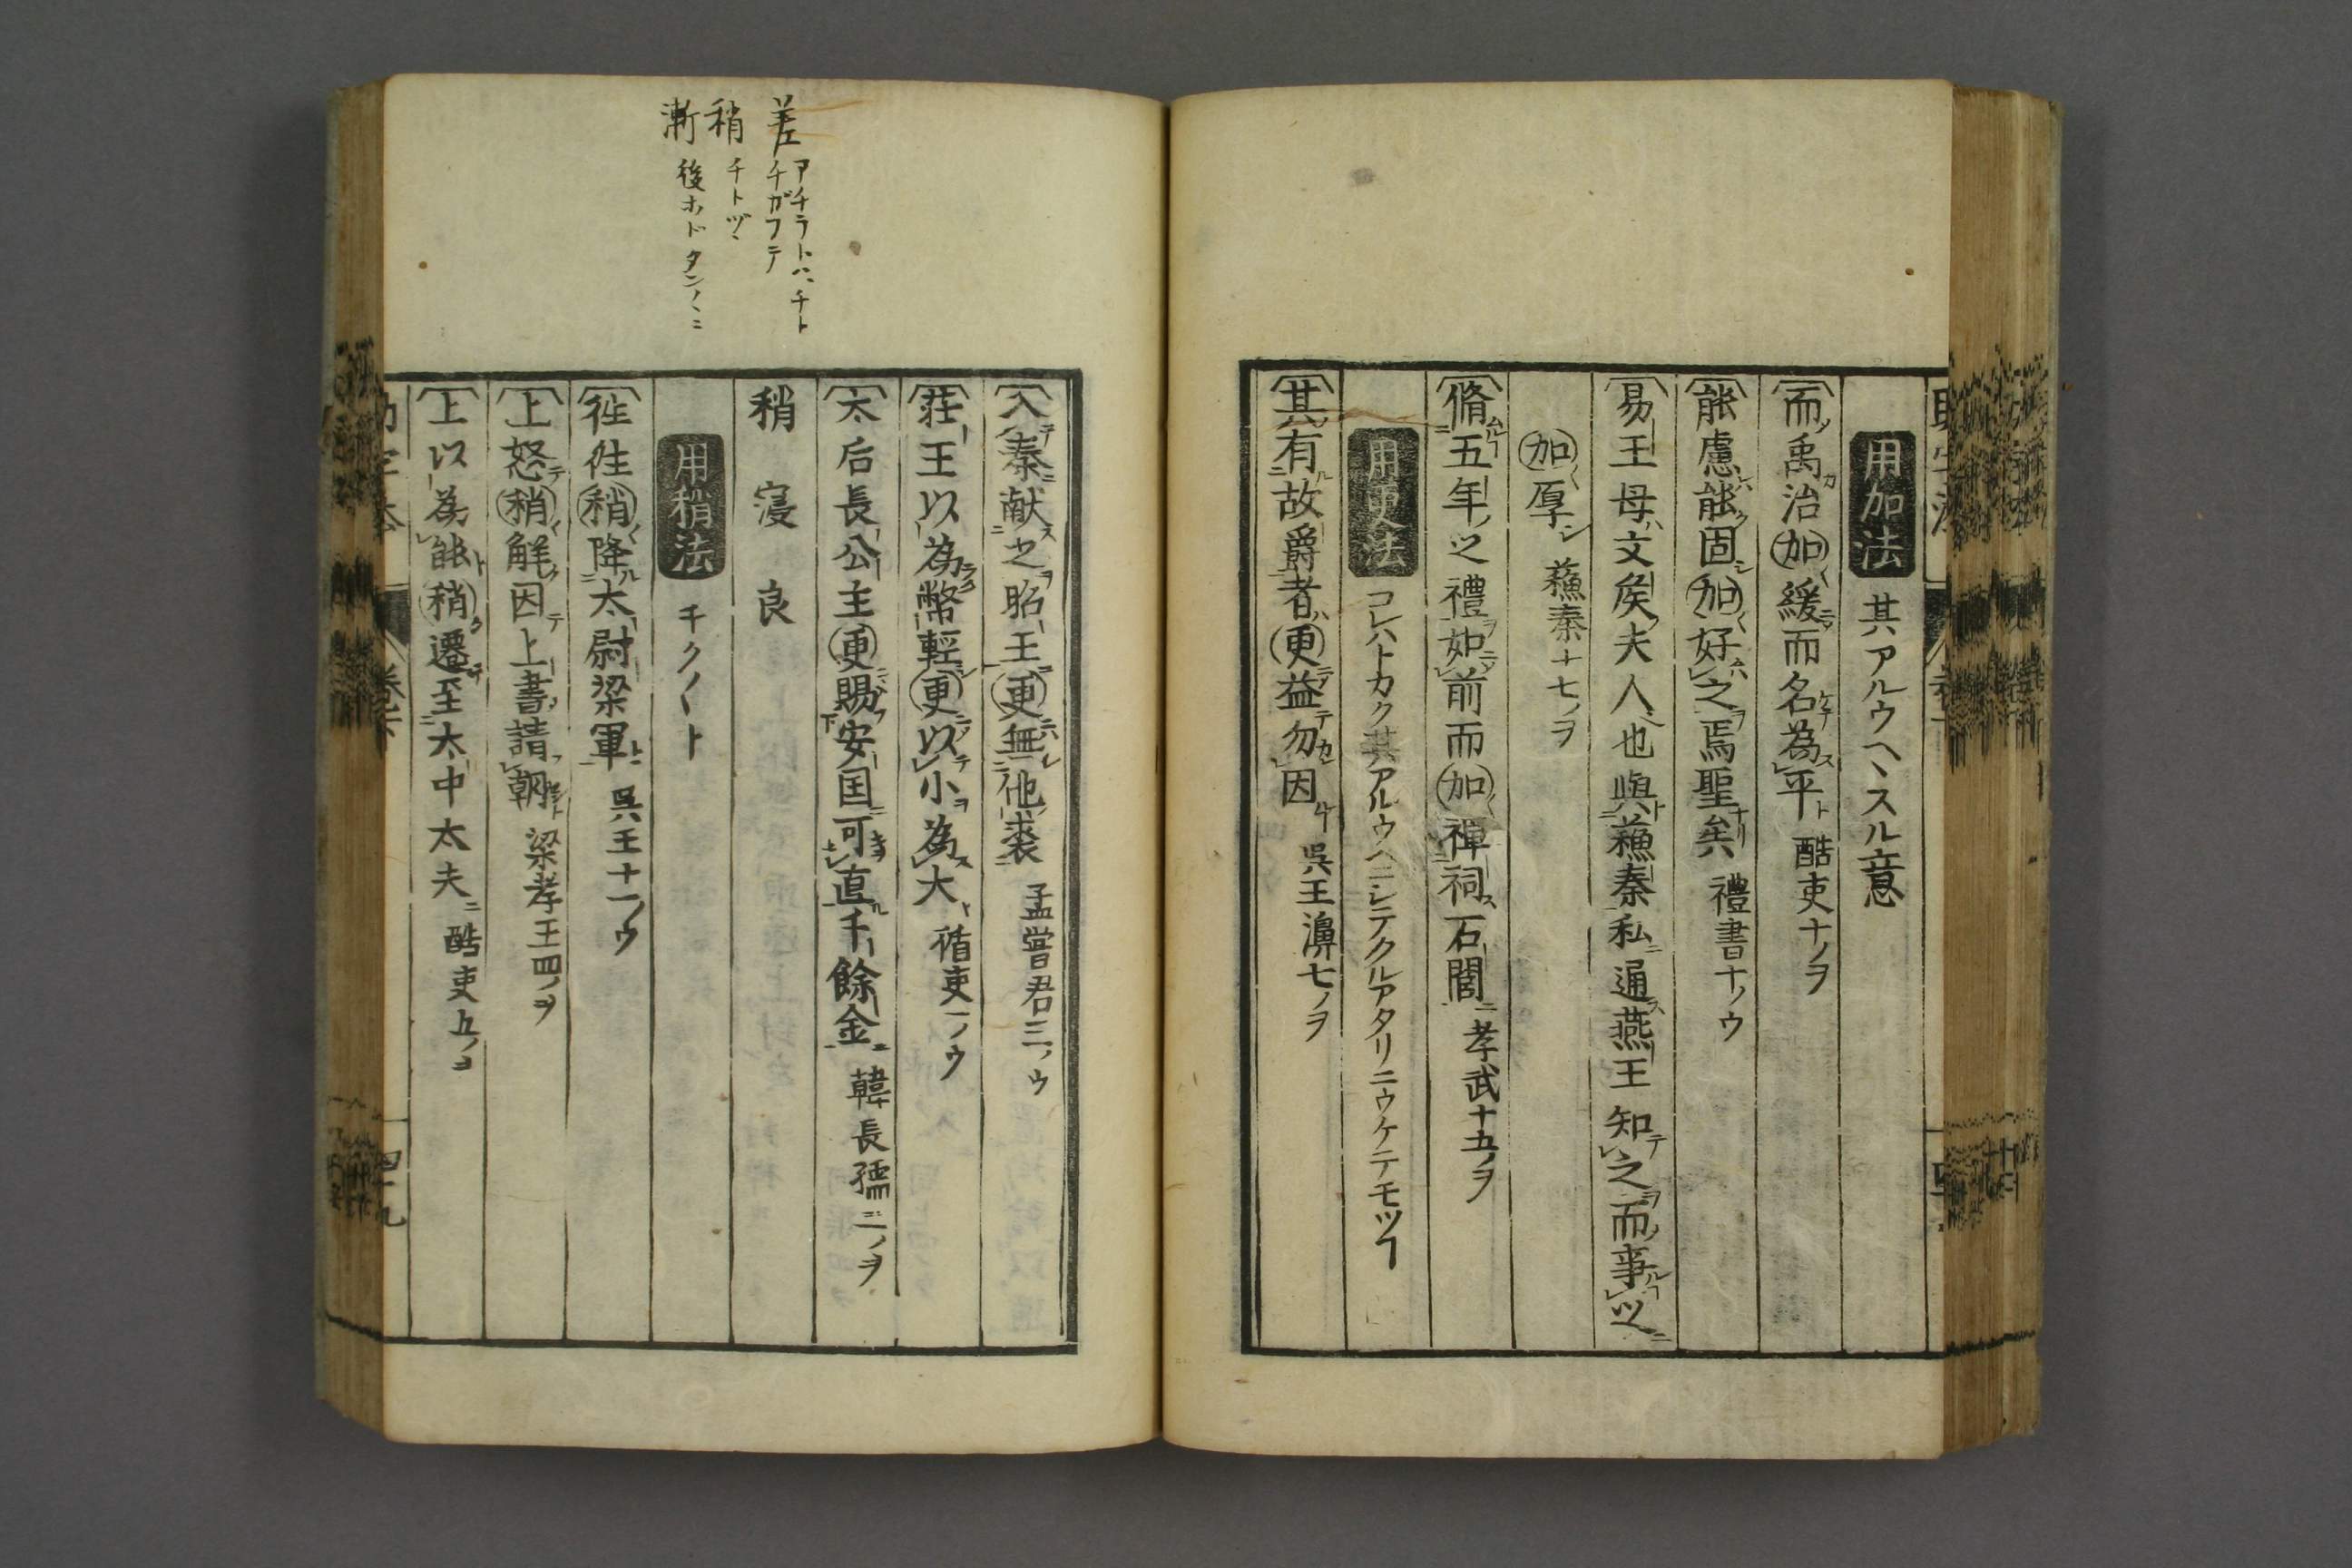 用加法 其アルウヘヽスル意
而禹治加緩而名為平 酷吏十ノヲ
能慮能固加好之焉聖矣 禮書十ノウ
易王母文矦夫人也與蘓秦私通燕王知之而事之
加厚 蘓秦十七ノヲ
脩五年之禮如前而加禪祠石閭 孝武十五ノヲ
用更法 コレハトカク其アルウヘニシテクルアタリニウケテモツヿ
其有故爵者更益勿因 呉王濞七ノヲ
入秦献之昭王更無他裘 孟嘗君三ノウ
莊王以為幣輕更以小為大 循吏一ノウ
太后長公主更賜安国可直千餘金 韓長孺二ノヲ
稍 寖 良
用稍法 チク〱ト
徃徃稍降太尉梁軍 呉王十一ノウ
上怒稍解因上書請朝 梁孝王四ノヲ
上以為能稍遷至太中太夫 酷吏五ノヲ
差 アチラトハチト
チガフテ
稍 チトヅヽ
漸 後ホドダン〱ニ